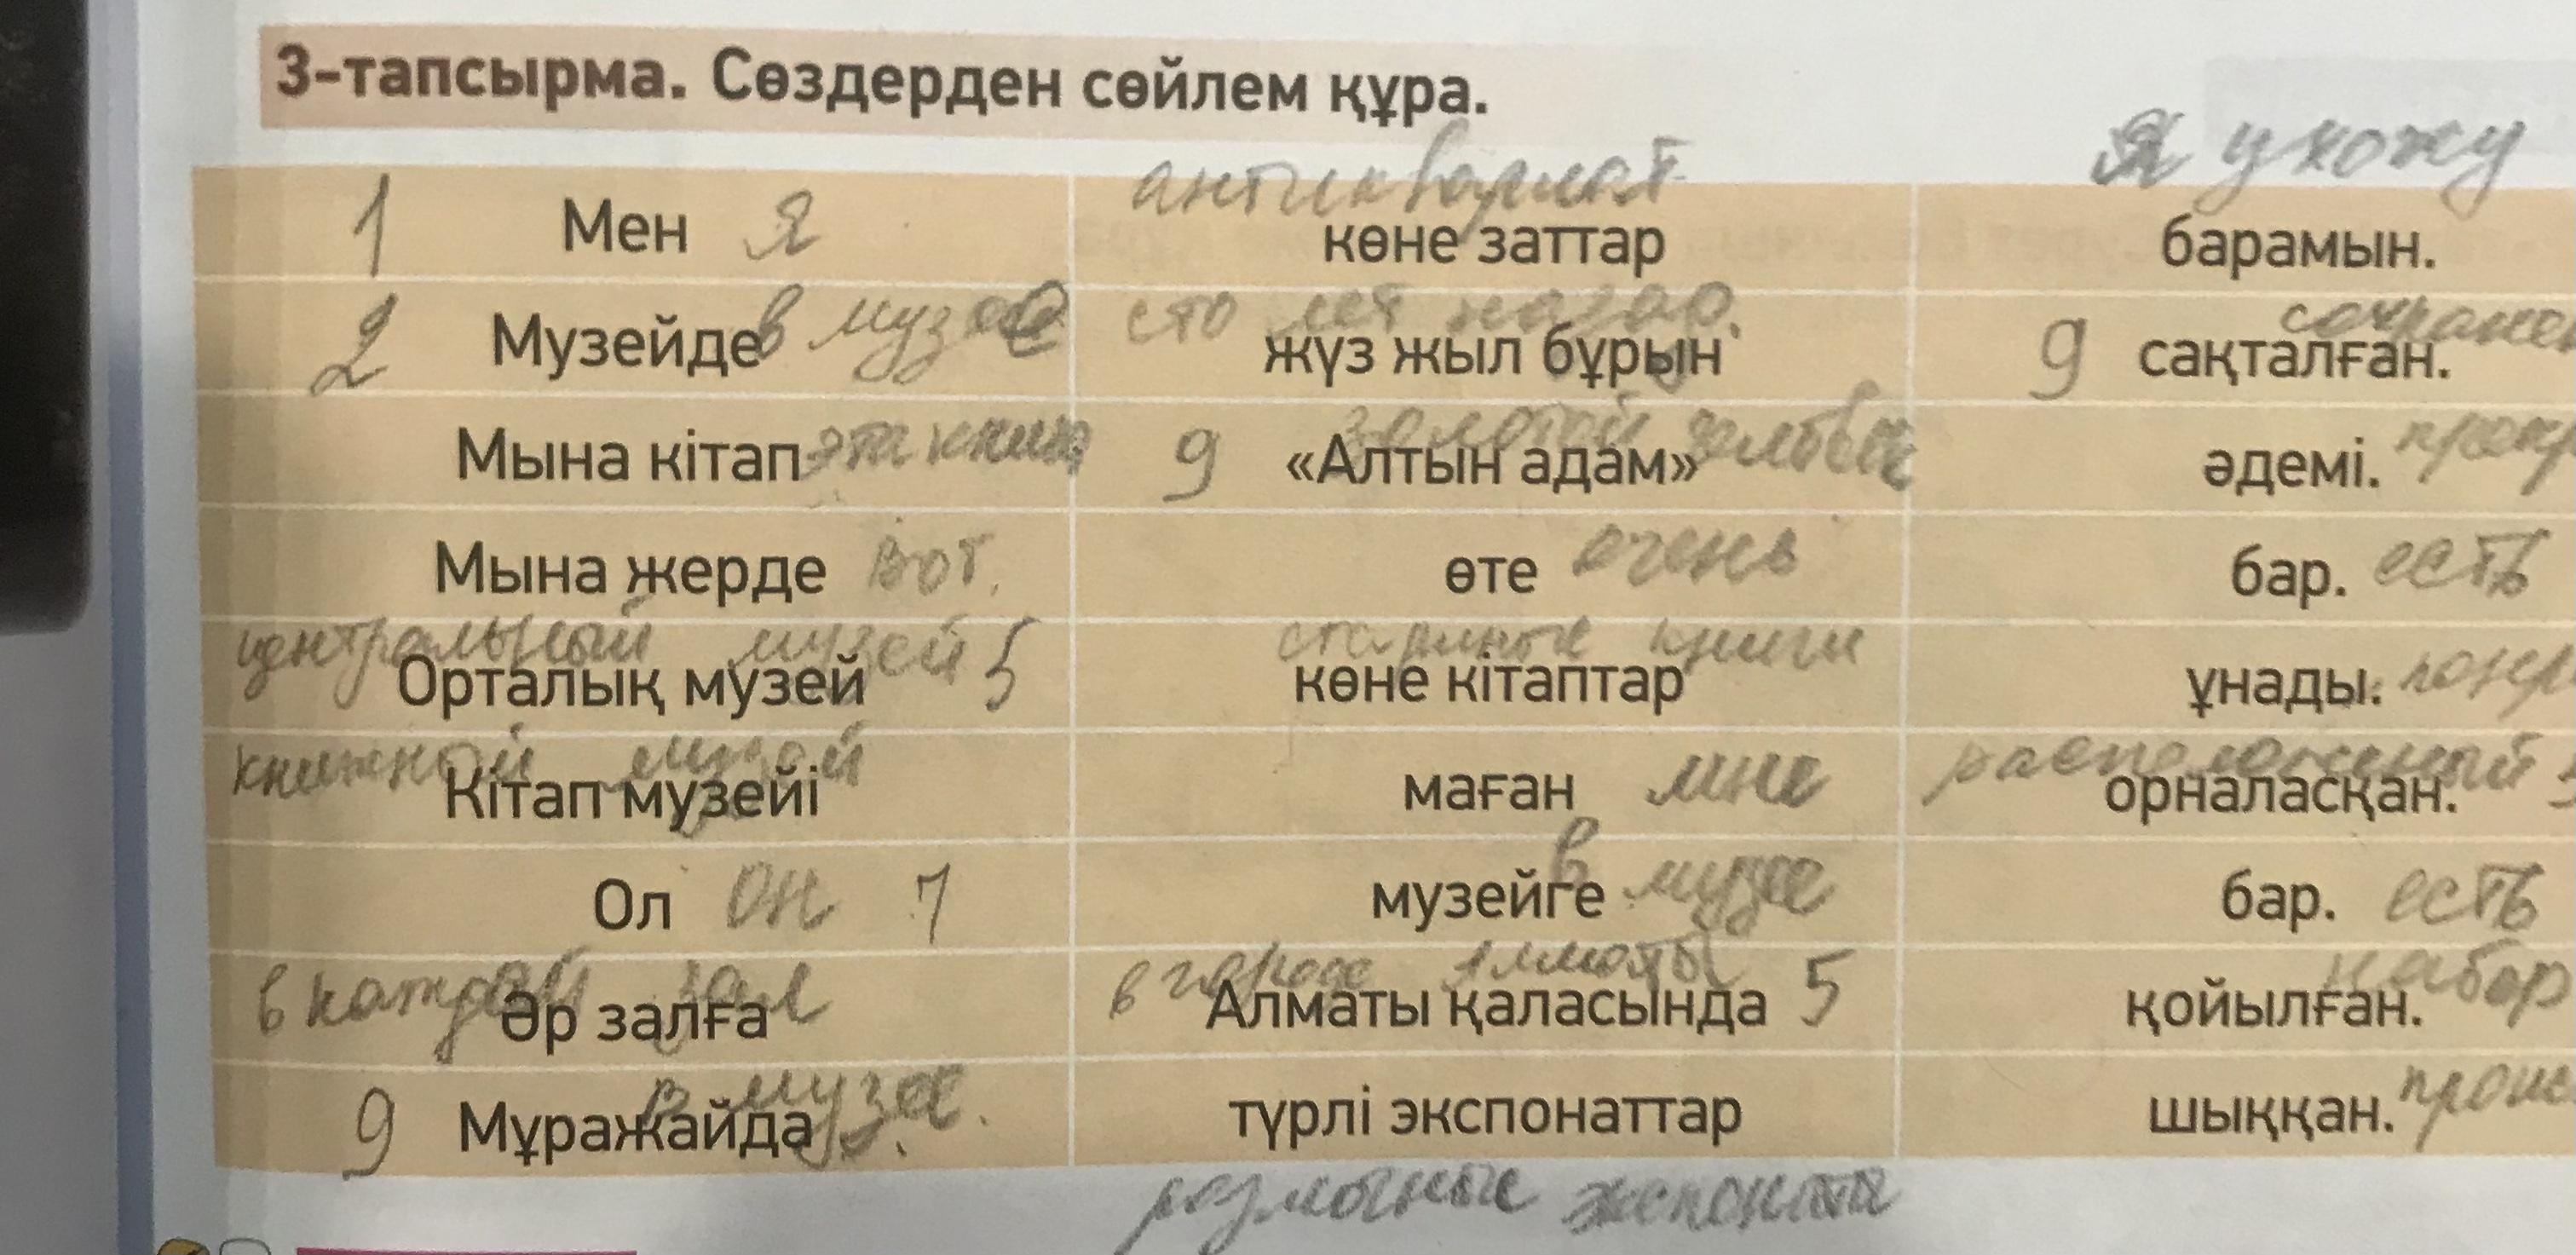 3-тапсырма. Сөздерден сөйлем құра.
Я ухожу
1 Мен я антиквариат көне заттар барамын.
2 Музейде в музее сто лет назад жүз жыл бұрын 9 сақталған.
Мына кітап эта книга 9 золотой «Алтын адам» әдемі.
Мына жерде вот. өте очень бар. есть
центральный музей 5 Орталық музей старинные книги көне кітаптар ұнады.
книжный музей Кітап музейі маған мне расположенный орналасқан.
Ол он 7 музейге в музее бар. есть
в каждый зал Әр залға в городе Алматы Алматы қаласында 5 набор қойылған.
9 Мұражайда в музее. түрлі экспонаттар шыққан.
различные экспонаты